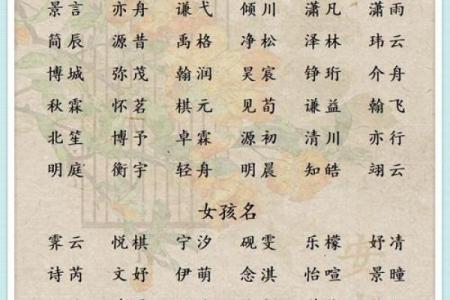 景言 亦舟 谦弋 倾川 潇凡 潇雨
简辰 源昔 禹格 净松 泽林 玮云
博城 弥茂 翰润 昊宸 铮珩 介舟
秋霖 怀茗 棋元 见荀 谦益 翰飞
北笙 博予 卓霖 源初 清川 亦行
明庭 衡宇 轻舟 明晨 知皓 翊云
女孩名
霁云 悦棋 宁汐 砚雯 乐檬 妤清
诗芮 文妤 伊萌 念淇 怡喧 景瞳